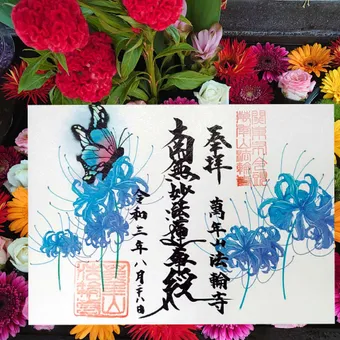 奉拝
萬年山法輪寺
南無妙法蓮華経
令和三年八月二八日